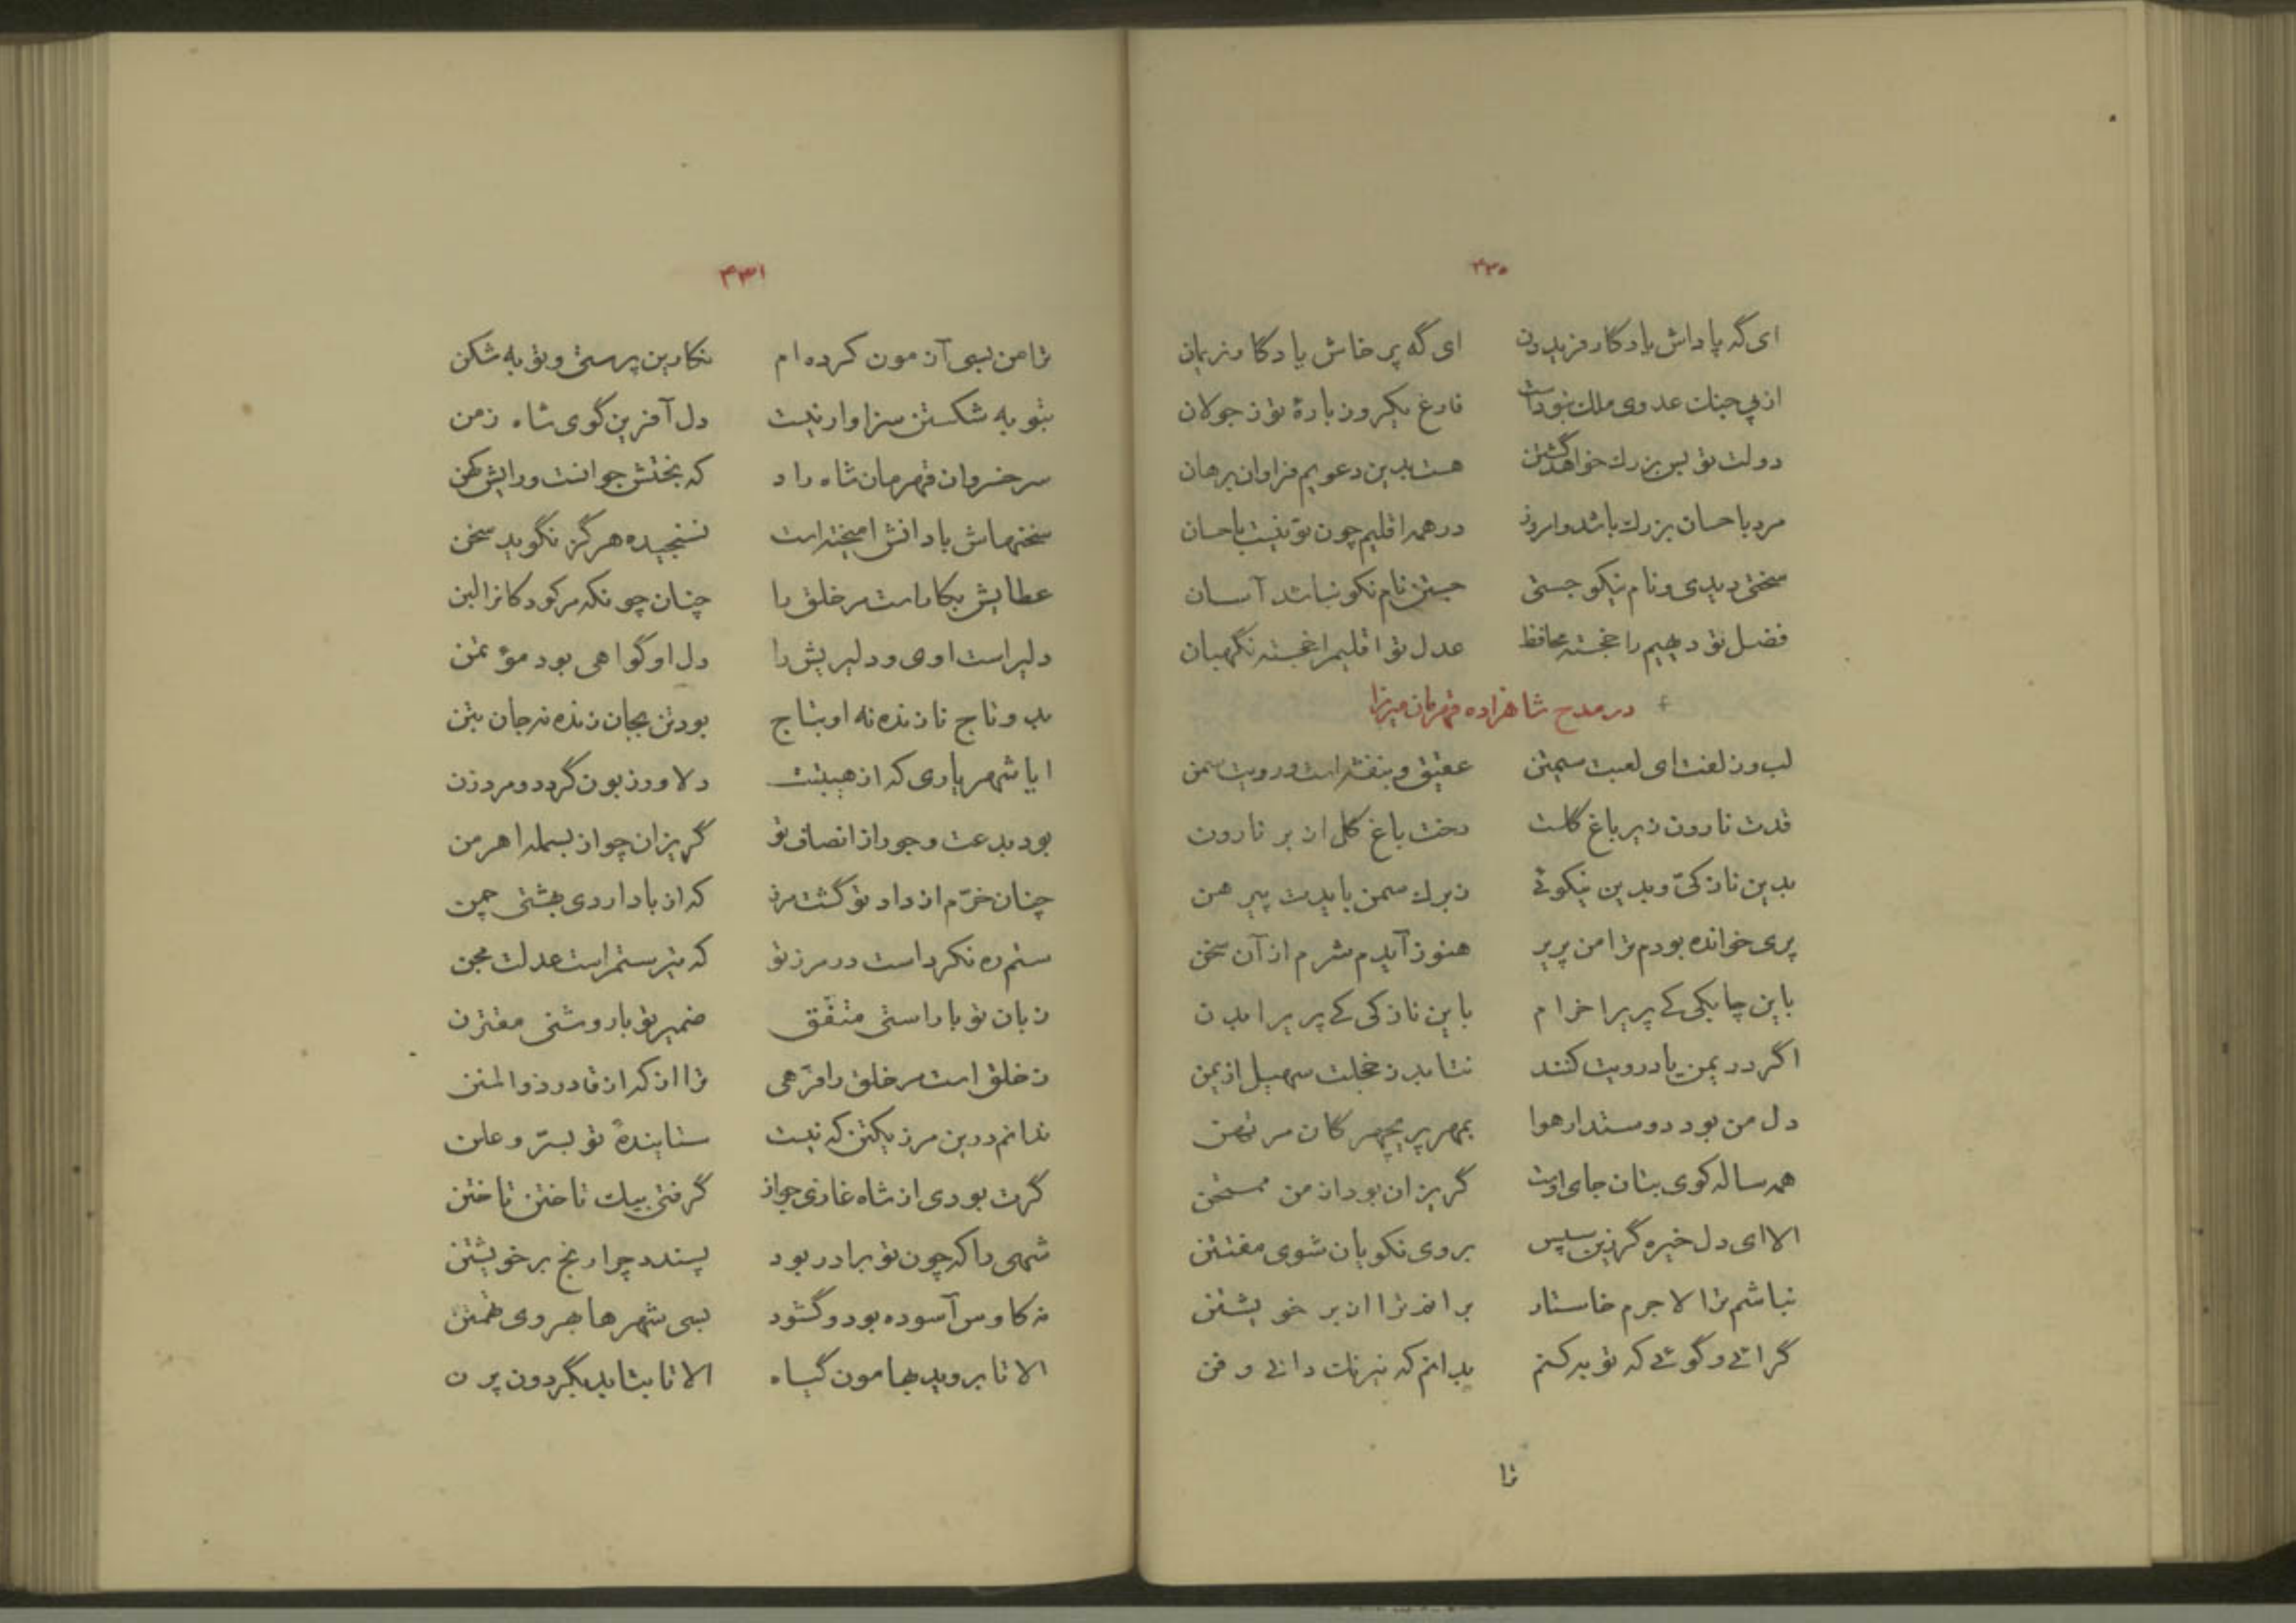 ۴۳۰
ای گه پاداش یادگار فریدون ای گه پرخاش یادگار نریمان
از پی جنک عدوی ملک نبوداست فارغ یکروز بارهٔ تو ز جولان
دولت تو بس بزرك خواهد گشتن هست بدین دعویم فراوان برهان
مرد باحسان بزرك باشد و امروز در همه اقلیم چون تو نیست باحسان
سختی دیدی و نام نیکو جستی جستن نام نکو نباشد آسان
فضل تو دیهیم را خجسته محافظ عدل تو اقلیم را خجسته نگهبان
در مدح شاهزاده قهرمان میرزا
لب و زلفت ای لعبت سیمتن عقیق و بنفشه است و رویت سمن
قدت نارون زیر باغ گلست رخت باغ گل از بر نارون
بدین نازکیّ و بدین نیکوئے ز برك سمن بایدت پیرهن
پری خوانده بودم ترا من پریر هنوز آیدم شرم از آن سخن
باین چابکی کے پریرا خرام باین نازکی کے پریرا بدن
اگر در یمن یاد رویت کنند نتابد ز خجلت سهیل از یمن
دل من بود دوستدار هوا بمهر پریچهرکان مرتهن
همه ساله کوی بتان جای اوست گریزان بود از من ممتحن
الا ای دل خیره گر زین سپس بروی نکویان شوی مفتتن
نباشم ترا لا جرم خاستار برانم ترا از بر خویشتن
گر ائے و گوئے که توبه کنم بدانم که نیرنك دانے و فن
ترا
۴۳۱
ترا من بسی آزمون کرده ام نکارین پرستی و توبه شکن
بتوبه شکستن سزاوار نیست دل آفرین گوی شاه زمن
سر خسروان قهرمان شاه راد که بختش جوانست و رایش کهن
سخنهاش با دانش امیخته است نسنجیده هرگز نگوید سخن
عطایش بکار است مر خلق را چنان چونکه مر کودکانرا لبن
دلیر است اوی و دلیریش را دل او گواهی بود مؤتمن
بدو تاج نازنده نه او بتاج بود تن بجان زنده نه جان بتن
ایا شهریاری که از هیبتت دلاور زبون گردد و مرد زن
بود بدعت و جور از انصاف تو گریزان چو از بسمله اهرمن
چنان خرّم از داد تو گشت مرز که از باد اردی بهشتی چمن
ستم ره نکرداست در مرز تو که تیر ستمراست عدلت مجن
زبان تو با راستی متفّق ضمیر تو با روشنی مقترن
ز خلق است مر خلق را فرّهی ترا از که از قادر ذوالمنن
ندانم در این مرز یکتن که نیست ستایندهٔ تو بسرّ و علن
گرت بودی از شاه غازی جواز گرفتی بیك تاختن تا ختن
شهی را که چون تو برادر بود پسندد چرا رنج بر خویشتن
نه کاوس آسوده بود و گشود بسی شهرها بروی تهمتن
الا تا بروید بهامون گیاه الا تا بتابد بگردون پرن